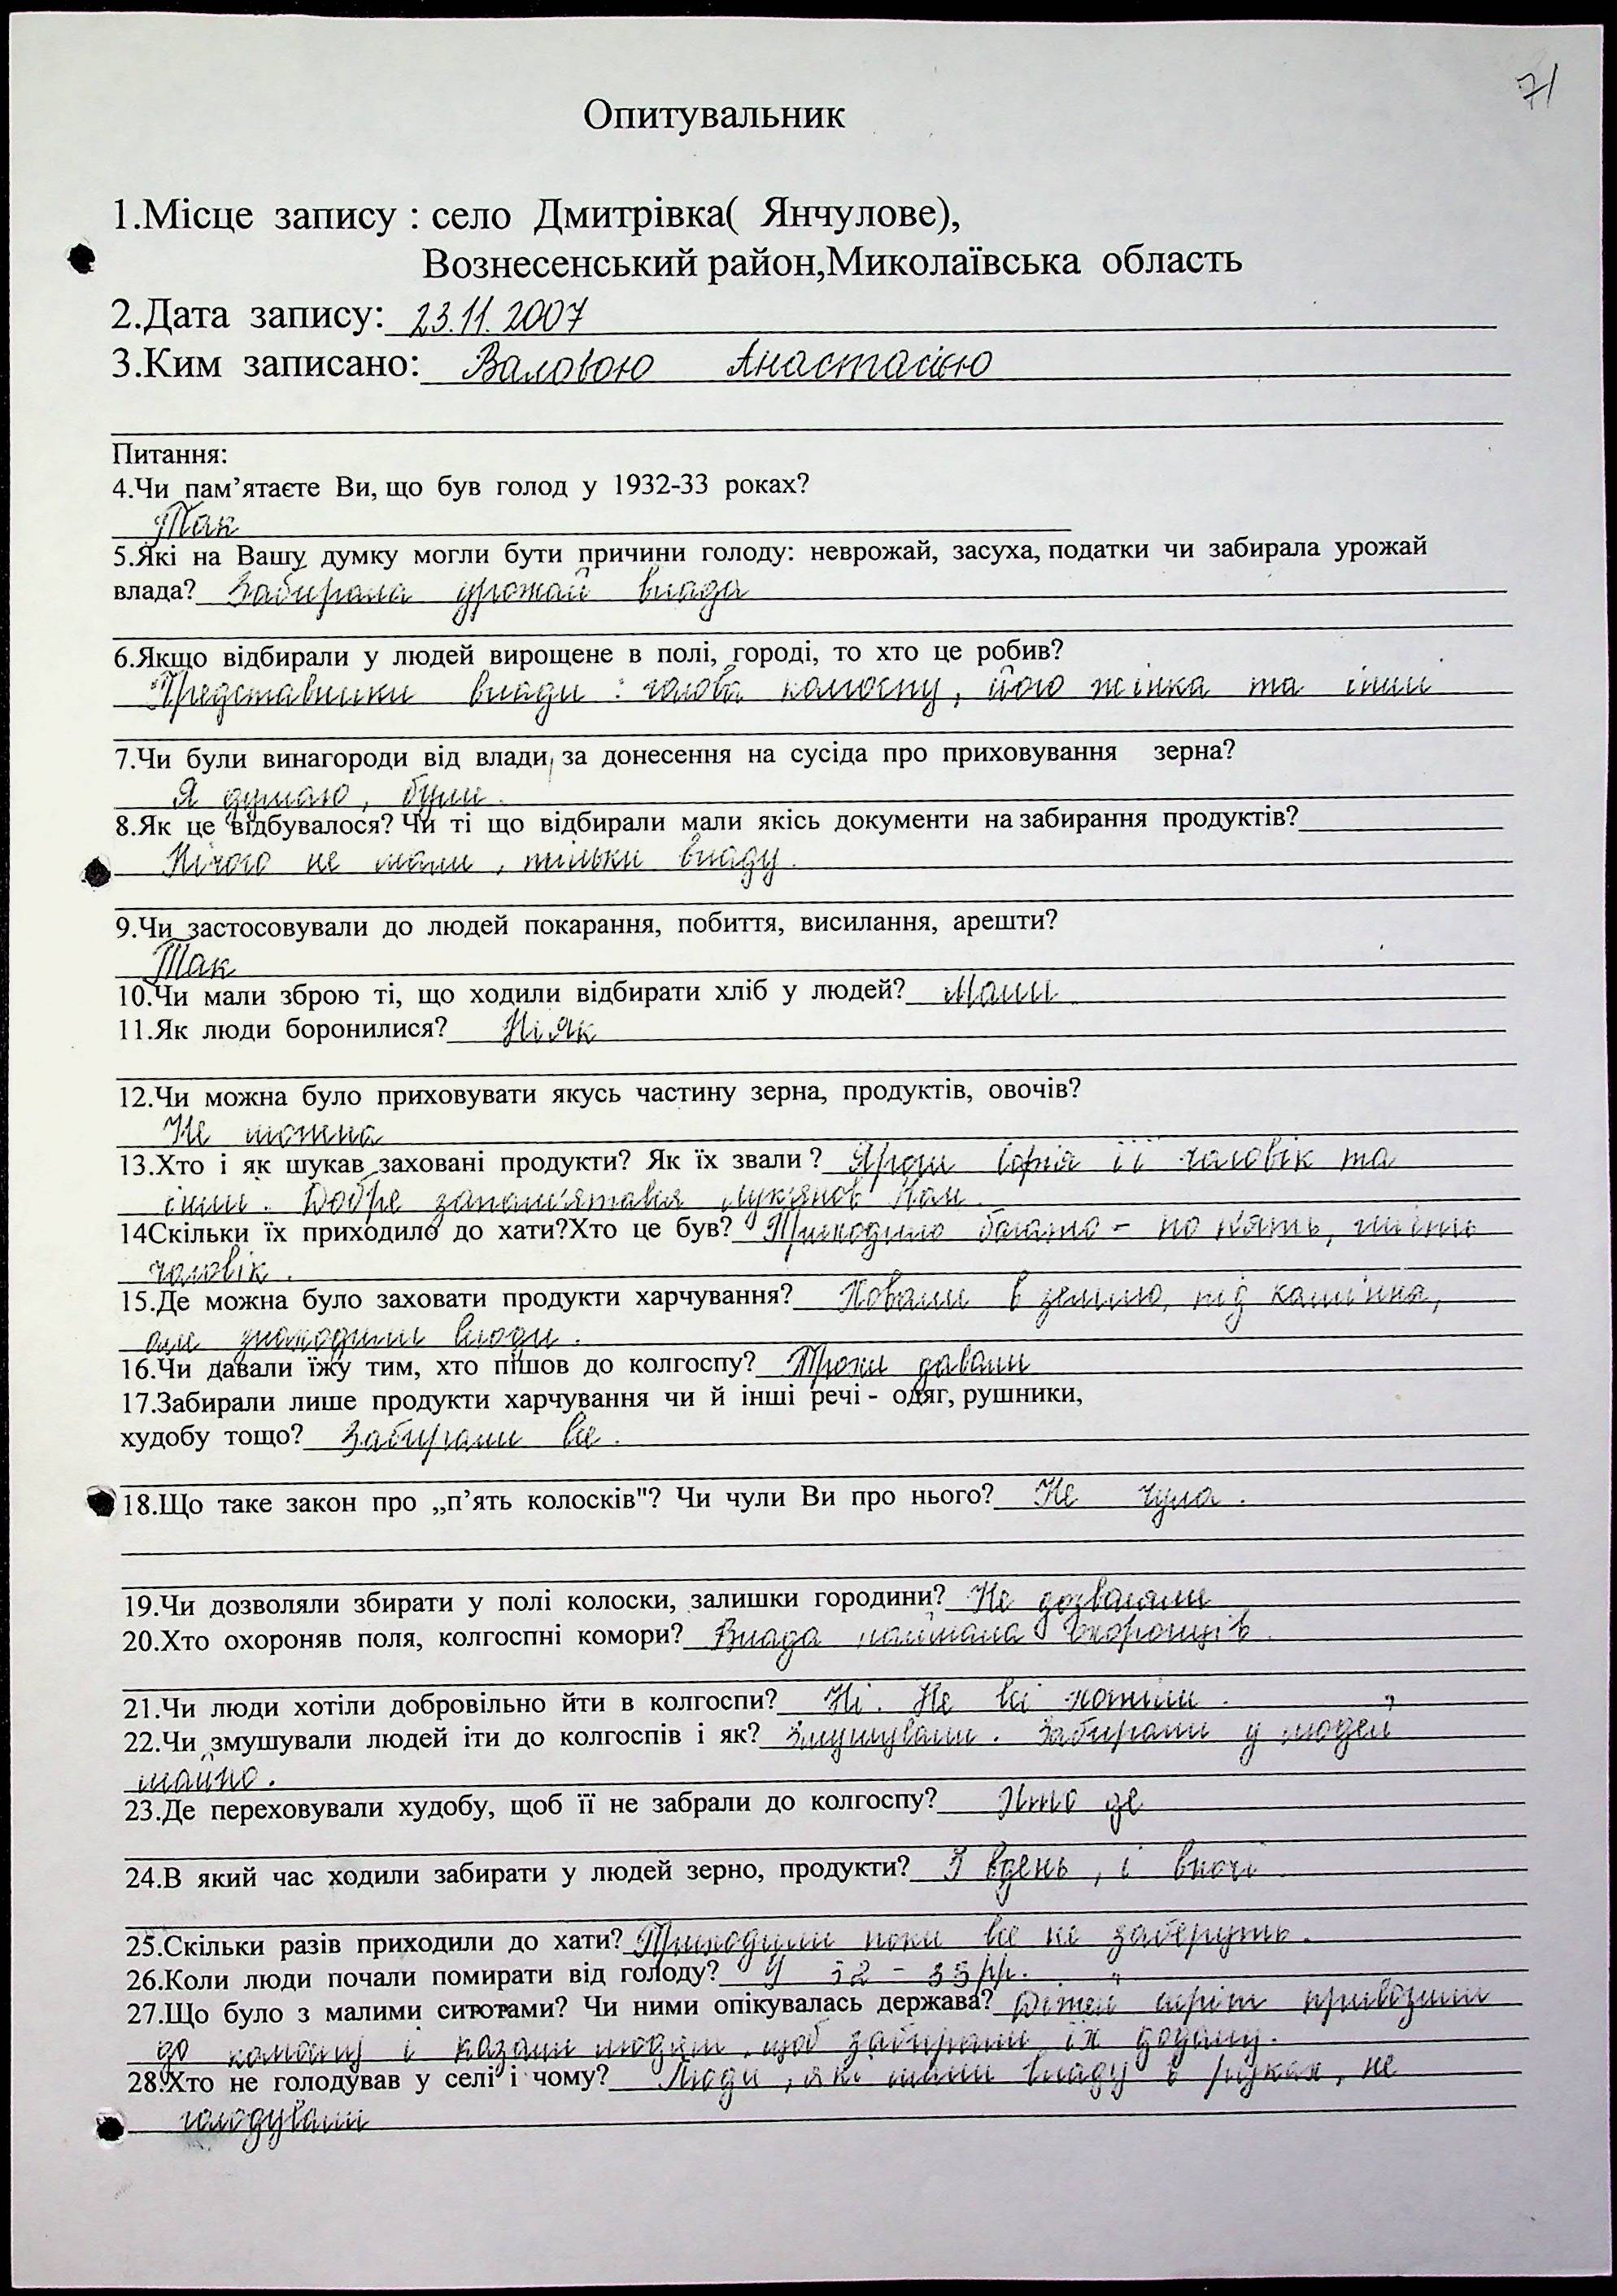 71
Опитувальник
1.Місце запису : село Дмитрівка( Янчулове),
Вознесенський район,Миколаївська область
2.Дата запису: 23.11.2007
3.Ким записано: Валовою Анастасією
Питання:
4.Чи пам’ятаєте Ви, що був голод у 1932-33 роках?
Так
5.Які на Вашу думку могли бути причини голоду: неврожай, засуха, податки чи забирала урожай
влада? Забирала урожай влада
6.Якщо відбирали у людей вирощене в полі, городі, то хто це робив?
Представники влади : голова колгоспу, його жінка та інши
7.Чи були винагороди від влади за донесення на сусіда про приховування зерна?
Я думаю, були.
8.Як це відбувалося? Чи ті що відбирали мали якісь документи на забирання продуктів?
Нічого не мали, тільки владу.
9.Чи застосовували до людей покарання, побиття, висилання, арешти?
Так
10.Чи мали зброю ті, що ходили відбирати хліб у людей? Мали.
11.Як люди боронилися? Ніяк
12.Чи можна було приховувати якусь частину зерна, продуктів, овочів?
Не можна
13.Хто і як шукав заховані продукти? Як їх звали ? Софія її чоловік та
інши. Добре запам'ятався Лук'янов
14Скільки їх приходило до хати?Хто це був? Приходило багато - по п'ять, шість
чоловік.
15.Де можна було заховати продукти харчування? Ховали в землю, під каміння,
али знаходили влади.
16.Чи давали їжу тим, хто пішов до колгоспу? Трохи давали
17.Забирали лише продукти харчування чи й інші речі - одяг, рушники,
худобу тощо? Забирали все.
18.Що таке закон про „п’ять колосків"? Чи чули Ви про нього? Не чула.
19.Чи дозволяли збирати у полі колоски, залишки городини? Не дозваляли
20.Хто охороняв поля, колгоспні комори? Влада наймала охоронців.
21.Чи люди хотіли добровільно йти в колгоспи? Ні. Не всі хотіли.
22.Чи змушували людей іти до колгоспів і як? Змушували. Забирали у людей
майно.
23.Де переховували худобу, щоб її не забрали до колгоспу? Хто де
24.В який час ходили забирати у людей зерно, продукти? І вдень, і вночі
25.Скільки разів приходили до хати? Приходили поки все не заберуть.
26.Коли люди почали помирати від голоду? У 32 - 33 рр.
27.Що було з малими ситотами? Чи ними опікувалась держава? Дітей сиріт привозили
до колгоспу і казали людям, щоб забирали їх додому.
28.Хто не голодував у селі і чому? Люди, які мали владу в руках, не
голодували